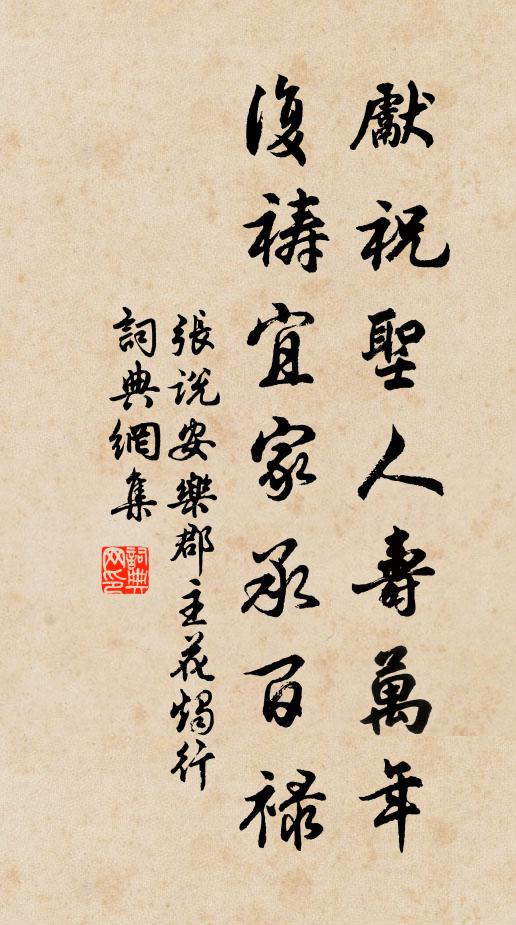 獻祝聖人壽萬年
復禱宜家承百祿
張說安樂郡主花燭行
詞典網集
詞典网印